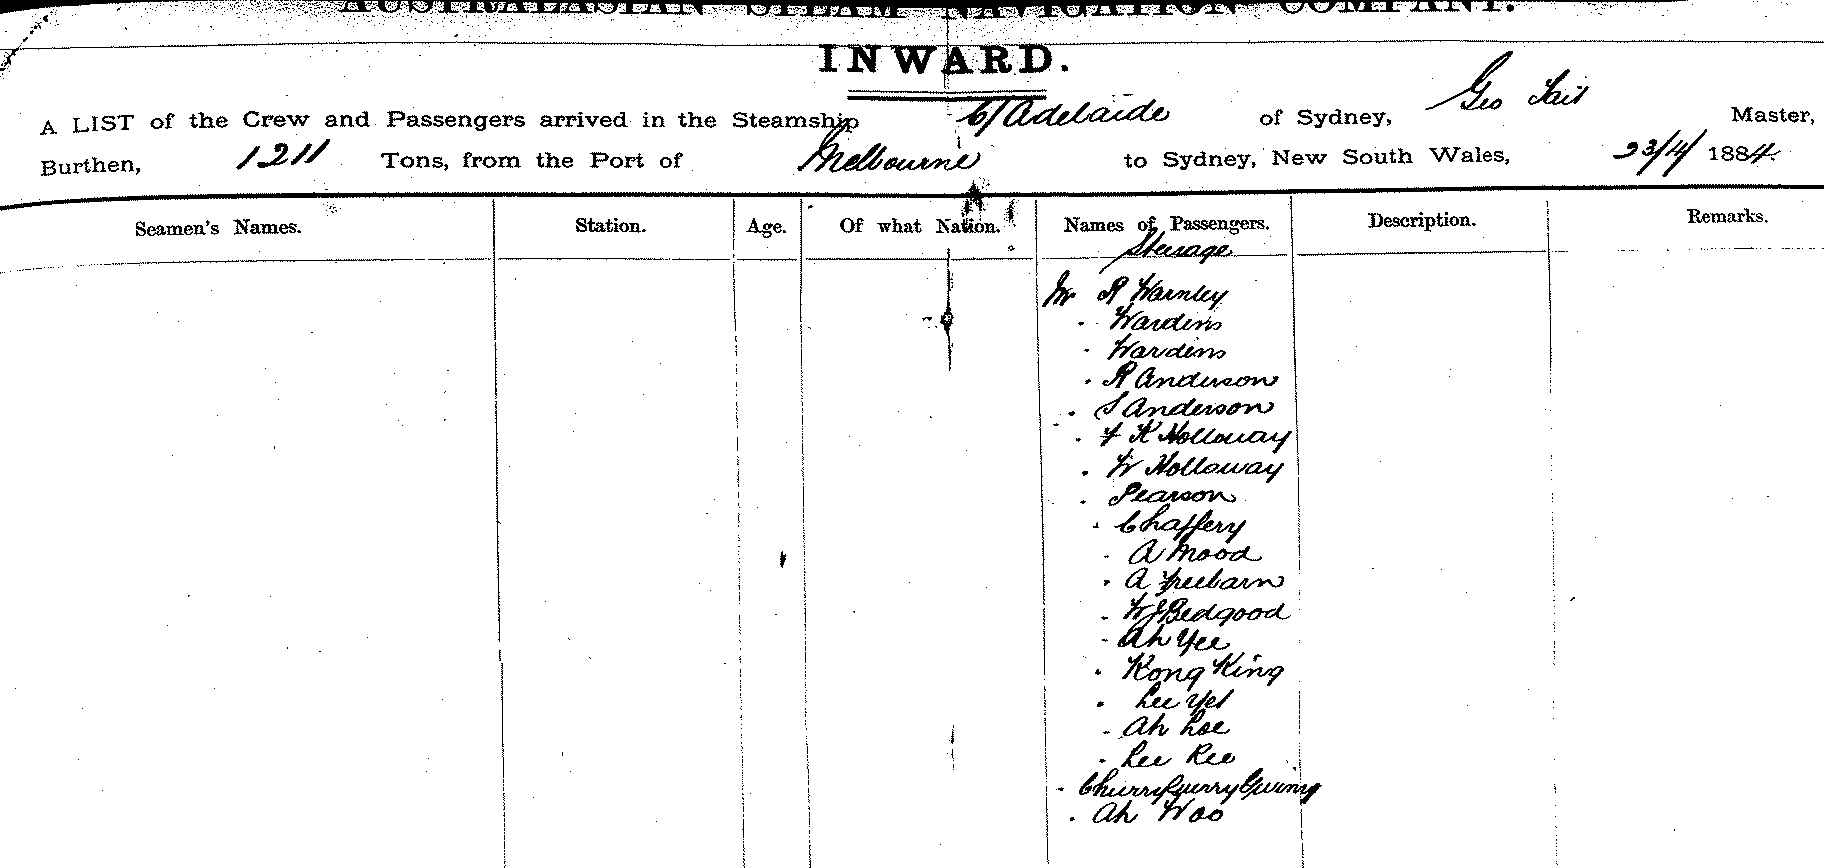 AUSTRALASIAN STEAM NAVIGATION COMPANY.
INWARD.
A LIST of the Crew and Passengers arrived in the Steamship C/Adelaide of Sydney, Geo Tait Master,
Burthen, 1211 Tons, from the Port of Melbourne to Sydney, New South Wales, 23/4/ 1884.
Seamen's Names. Station. Age. Of what Nation. Names of Passengers. Description. Remarks.
Steerage
Mr R Warnley
" Wardins
" Wardins
" R Anderson
" S Anderson
" F K Holloway
" W Holloway
" Pearson
" Chaffery
" A Mood
" A Freebarn
" W J Bedgood
" Ah Yee
" Kong King
" Lee Yet
" Ah Loe
" Lee Kee
" Churry
" Ah Woo